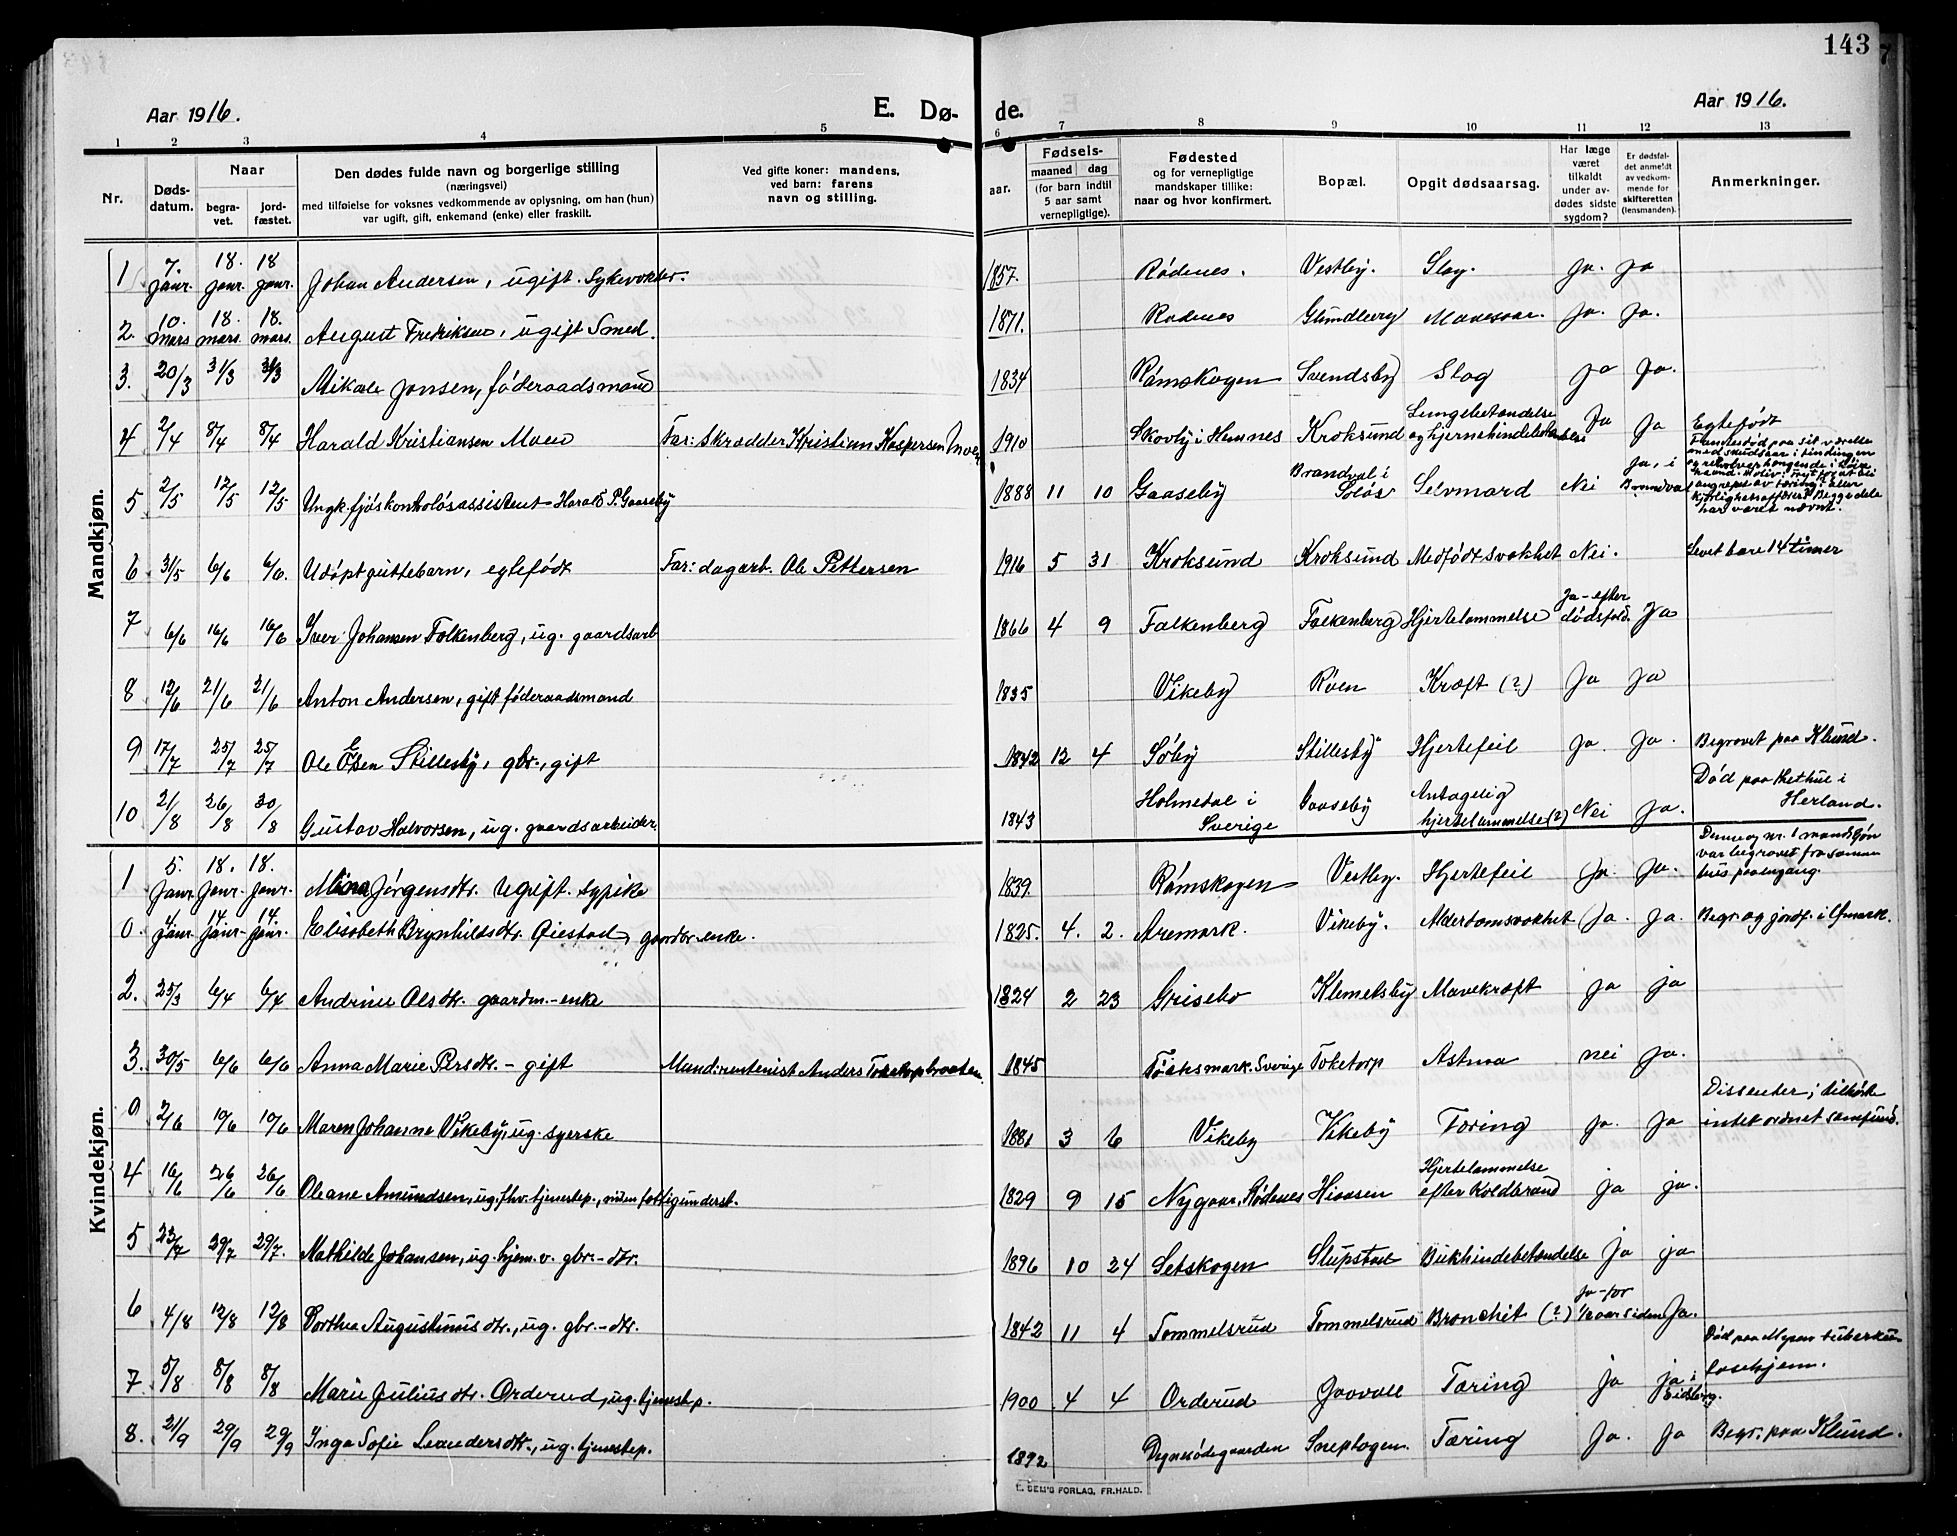 143
Aar 1916.
E. Dø-
de.
Aar 1916.
1 2 3 4 5 6 7 8 9 10 11 12 13
Nr.
Døds-
datum.
Naar
begra-
vet.
jord-
fæstet.
Den dødes fulde navn og borgerlige stilling
(næringsvei)
med tilføielse for voksnes vedkommende av oplysning, om han (hun)
var ugift, gift, enkemand (enke) eller fraskilt.
Ved gifte koner: mandens,
ved barn: farens
navn og stilling.
Fødsels-
aar.
maaned dag
(for barn indtil
5 aar samt
vernepligtige).
Fødested
og for vernepligtige
mandskaper tillike:
naar og hvor konfirmert.
Bopæl.
Opgit dødsaarsag.
Har læge
været
tilkaldt
under av-
dødes sidste
sygdom?
Er dødsfal-
det anmeldt
av vedkom-
mende for
skifteretten
(lensmanden).
Anmerkninger.
Mandkjøn.
1 7. janr. 18. janr. 18 janr. Johan Andersen, ugift. Sykevokter. 1857. Rødenes. Vestby. Slag. Ja. Ja
2. 10. mars 18. mars. 18. mars. August Fredriksen, ugift Smed. 1871. Rødenes Grundberg Ja. Ja.
3. 20/3 31/3 31/3 Mikael Jonsen, føderaadsmand 1834 Rømskogen Svendsby Slag Ja Ja.
4 2/4 8/4 8/4 Harald Kristiansen Moen Far: Skrædder Kristian Kaspersen Moen 1910 Skovby i Hemnes Kroksund Lungebetændelse og hjernehindebetændelse Ja Ja Egtefødt
5 2/5 12/5 12/5 Ungk. fjøskontrolassistent Harald P. Gaaseby 1888 11 10 Gaaseby Brandval i Solør Selvmord Nei Ja, i Brandval Fandtes død paa sit værelse med skudsaar i tindingen og revolver hængende i høire haand. Motiv: angrepet av tæring i eller kjærlighetsaffærer? Begge dele har været nævnt.
6 31/5 6/6 6/6. Udøpt guttebarn, egtefødt Far: dagarb. Ole Pettersen 1916 5 31 Kroksund Kroksund Medfødt svakhet Nei. Levet bare 14 timer
7 6/6 16/6 16/6 Iver Johansen Falkenberg, ug. gaardsarb 1866 4 9 Falkenberg Falkenberg Hjertelammelse Ja-efter dødsfald. Ja
8 12/6 21/6 21/6 Anton Andersen, gift føderaadsmand 1835 Vikeby Røen Kræft (?) Ja Ja
9 17/7 25/7 25/7 Ole Olsen Stillesby, gbr., gift 1842 12 4 Søby Stillesby Hjertefeil Ja. Ja. Begravet paa Klund.
10 21/8 26/8 30/8 Gustav Halvorsen, ug. gaardsarbeider. 1843 Holmedal i Sverige Gaaseby Antagelig hjertelammelse (?) Nei Ja. Død paa Bethul i Herland.
Kvindekjøn.
1 5. Janr. 18. Janr. 18. janr. Mina Jørgensdtr. Ugift. sypike 1839. Rømskogen Vestby. Hjertefeil Ja. Ja. Denne og nr. 1 mandkjøn var begravet fra samme hus paa engang.
0. 4. Janr. 14. Janr. 14. Janr. Elisabeth Brynhildsdtr. Øiestad, gaardbr.enke. 1825. 4. 2. Aremark. Vikeby. Alderdomssvakhet Ja. Ja. Begr. og jordf. i Ømark.
2. 25/3 6/4 6/4 Andrine Olsdtr. gaardm.-enke 1824 2 23 Grisebo Klemetsby Mavekræft Ja Ja
3. 30/5 6/6 6/6 Anna Marie Persdtr. - gift Mand: rentenist Anders Toketorpbraaten. 1845 Töcksmark. Sverige Toketorp Astma nei Ja.
0 2/6 10/6 10/6 Maren Johanne Vikeby, ug. syerske 1881 3 6 Vikeby Vikeby Tæring Ja. Ja Dissenter, tilhørte intet ordnet samfund.
4 16/6 26/6 26/6 Oleane Amundsen, ug, fhv. tjenestep., niden fattigunderst. 1829 9 15 Nygaar. Rødenes Hiaasen Hjertelammelse efter Koldbrand ja ja.
5 23/7 29/7 29/7. Mathilde Johansen, ug. hjem. v. gbr.-dtr. 1896 10 24 Setskogen Slupstad Bukhindebetændelse Ja ja
6 4/8 12/8 12/8 Dorthea Augustinusdtr., ug. gbr.-dtr. 1842 11 4 Tommelsrud Tommelsrud Bronchit (?) Ja-for 1/2 aar siden Ja.
7 5/8 8/8 8/8 Marie Juliusdtr. Orderud, ug. tjenestep. 1900 4 4 Orderud Gaavall Tæring ja ja i Eidsberg. Død paa Mysen tuberkulosehjem.
8. 21/9 29/9 29/9 Inga Sofie Leandersdtr., ug. tjenestep. 1892 Sneplogen. Tæring Ja. Ja Begr. paa Klund.
E. SEM'S FORLAG, FR.HALD.